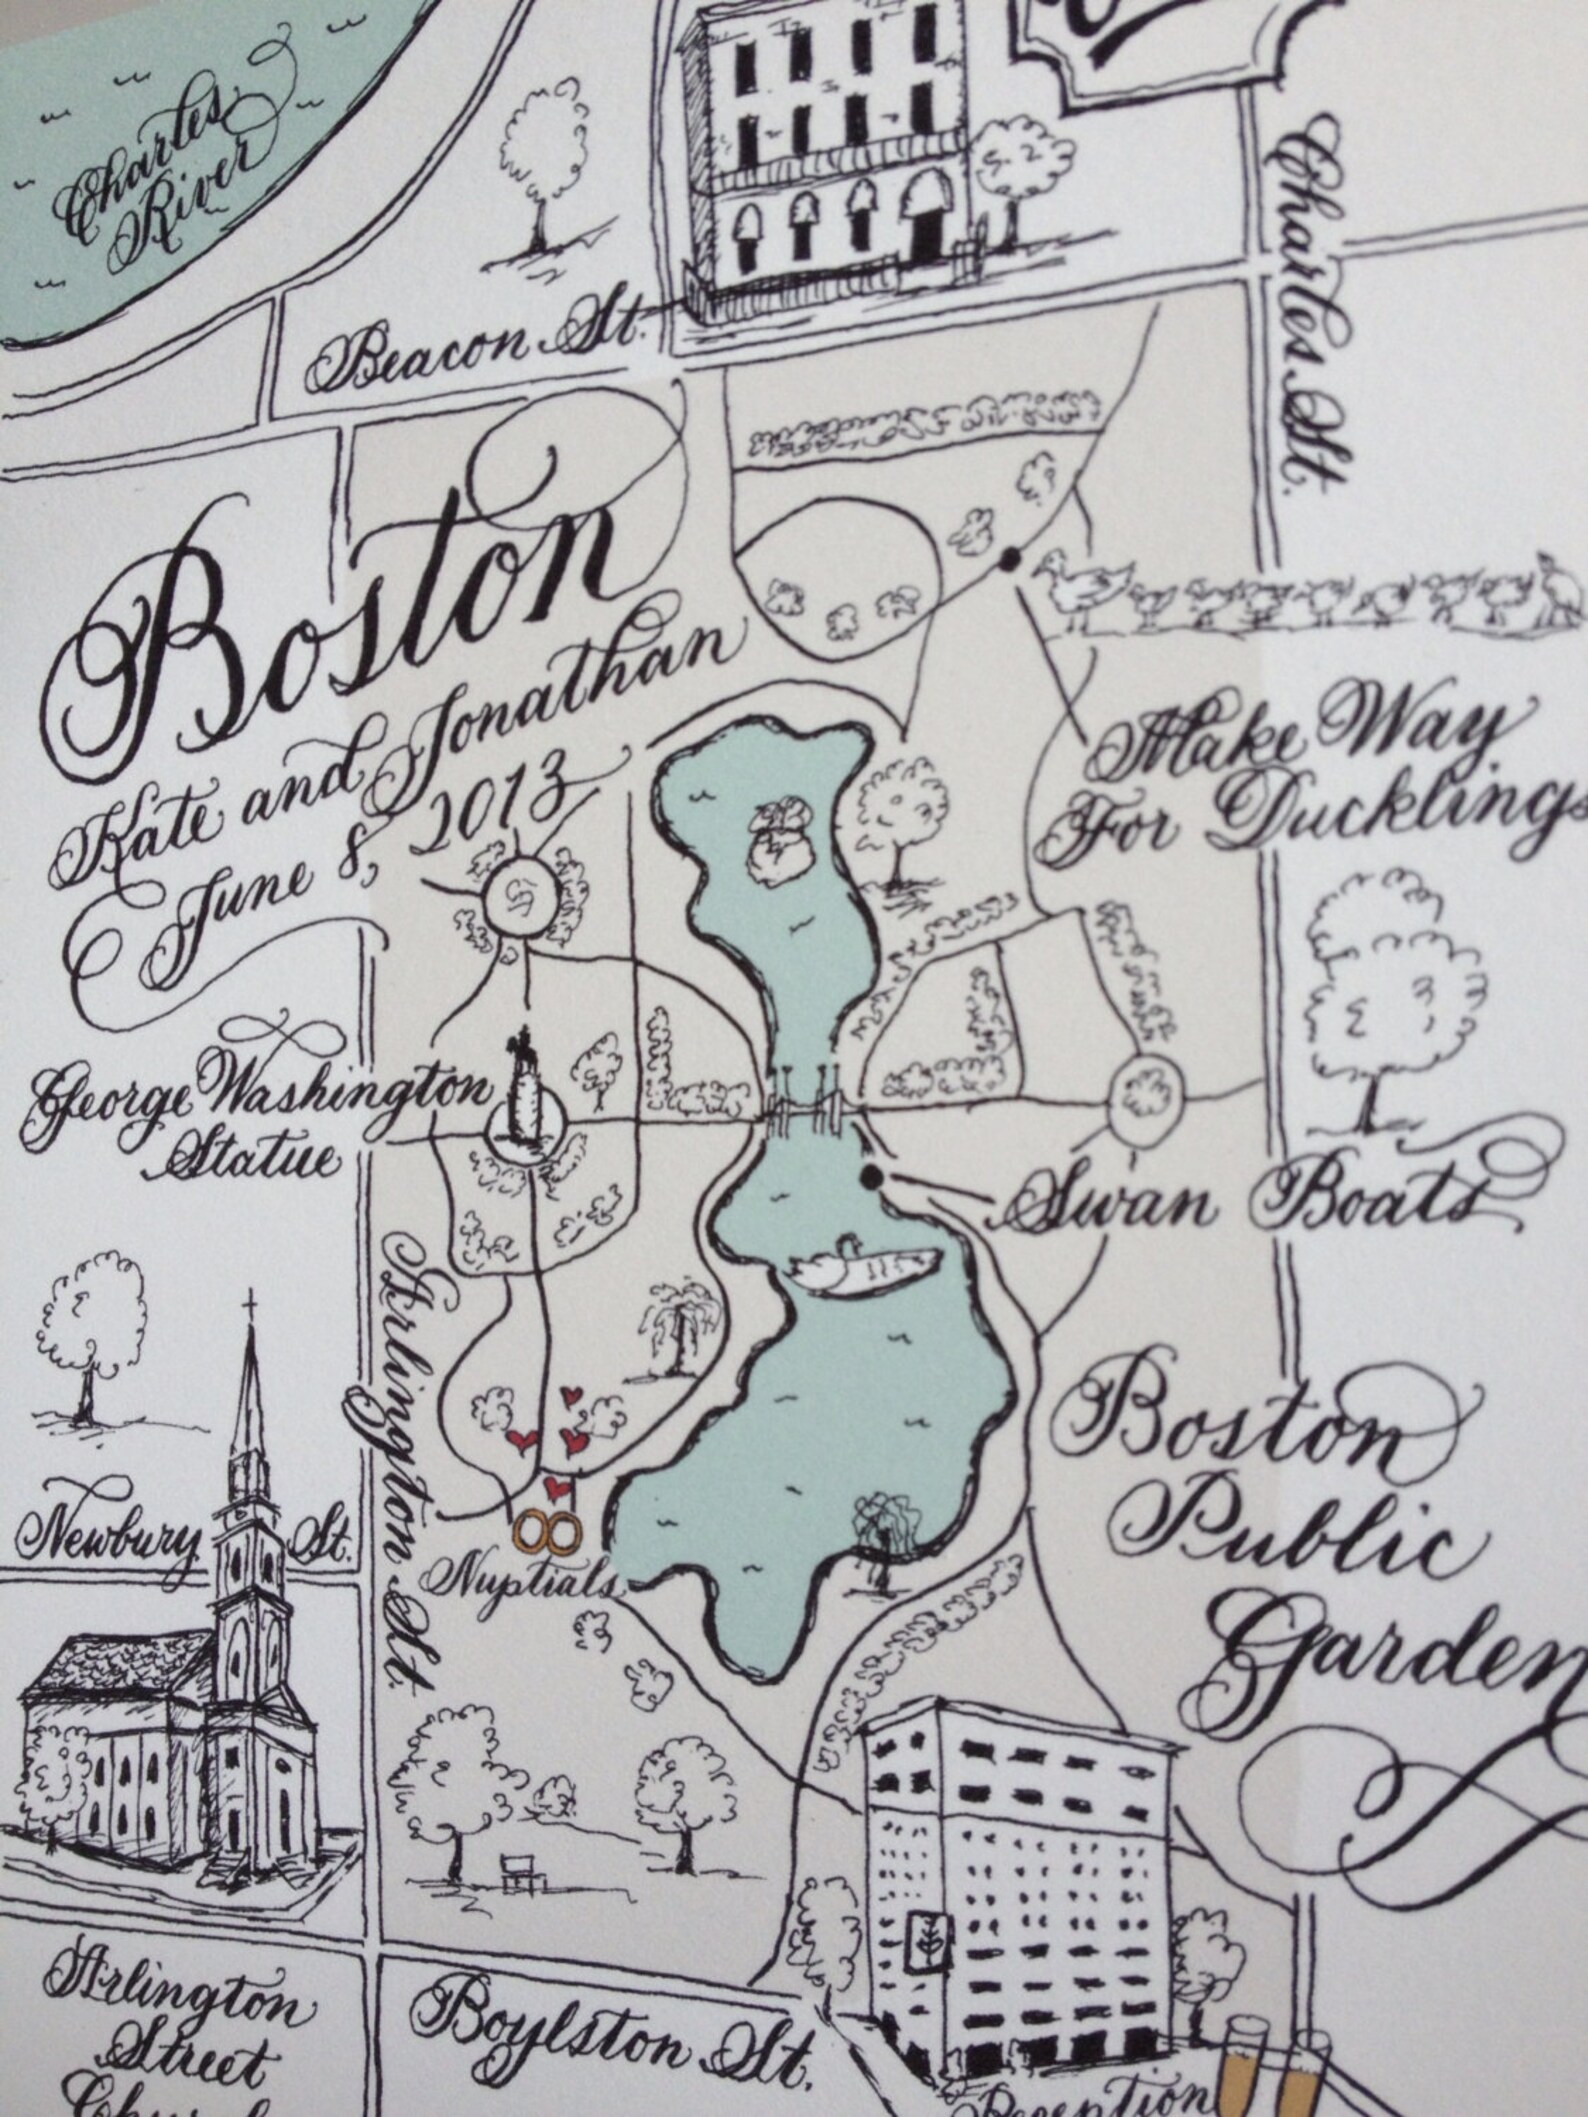 Charles
River
Beacon St.
Charles St.
Boston
Kate and Jonathan
June 8, 2013
Make Way
For Ducklings
George Washington
Statue
Swan Boats
Arlington St.
Boston
Public
Garden
Newbury St.
Nuptials
Arlington
Street
Church
Boylston St.
Reception